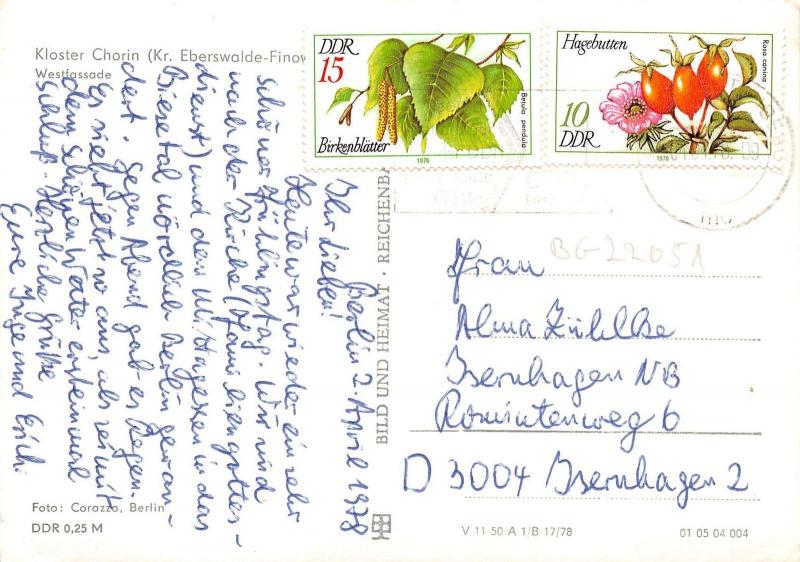 Kloster Chorin (Kr. Eberswalde-Finow
Westfassade
Berlin 2. April 1978
Ihr Lieben!
Heute war wieder ein sehr
schöner Frühlingstag. Wir sind
nach der Kirche (Familiengottes-
dienst) und dem Mittagessen in das
Biesetal nördlich Berlin gewan-
dert. Gegen Abend gab es Regen.
Es sieht jetzt so aus, als sei mit
dem schönen Wetter erst einmal
Schluß. Herzliche Grüße
Eure Inge und Erich.
Foto: Corazza, Berlin
DDR 0,25 M
BILD UND HEIMAT · REICHENBA
DDR
15
Birkenblätter
Betula pendula
1978
Hagebutten
Rosa canina
10
DDR
1978
BG22051
Frau
Alma Zühlke
Isernhagen NB
Rominteweg 6
D 3004 Isernhagen 2
V 11 50 A 1/B 17/78
01 05 04 004